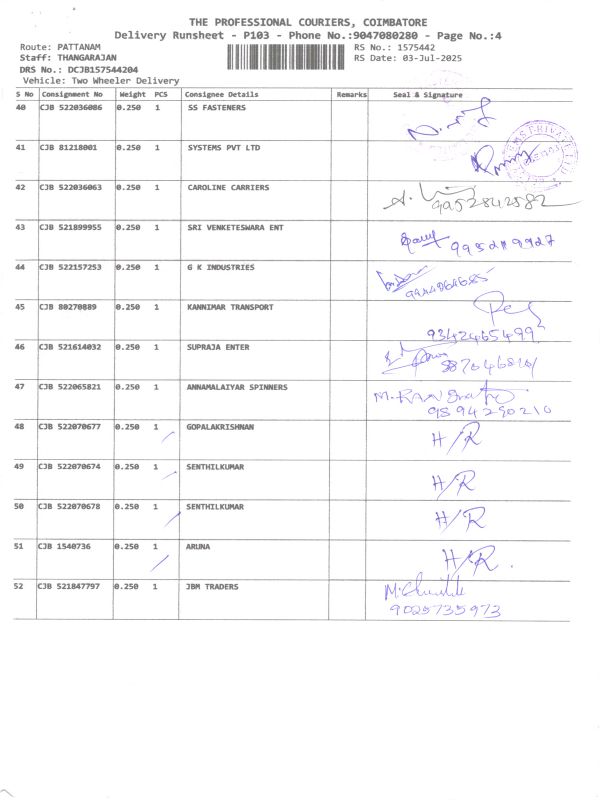 THE PROFESSIONAL COURIERS, COIMBATORE
Delivery Runsheet - P103 - Phone No.:9047080280 - Page No.:4
Route: PATTANAM RS No.: 1575442
Staff: THANGARAJAN RS Date: 03-Jul-2025
DRS No.: DCJB157544204
Vehicle: Two Wheeler Delivery
S No Consignment No Weight PCS Consignee Details Remarks Seal & Signature
40 CJB 522036086 0.250 1 SS FASTENERS
41 CJB 81218001 0.250 1 SYSTEMS PVT LTD
42 CJB 522036063 0.250 1 CAROLINE CARRIERS
9952842582
43 CJB 521899955 0.250 1 SRI VENKETESWARA ENT
44 CJB 522157253 0.250 1 G K INDUSTRIES
45 CJB 80270889 0.250 1 KANNIMAR TRANSPORT
9342465499
46 CJB 521614032 0.250 1 SUPRAJA ENTER
47 CJB 522065821 0.250 1 ANNAMALAIYAR SPINNERS
9894290210
48 CJB 522070677 0.250 1 GOPALAKRISHNAN H/R
49 CJB 522070674 0.250 1 SENTHILKUMAR H/R
50 CJB 522070678 0.250 1 SENTHILKUMAR H/R
51 CJB 1540736 0.250 1 ARUNA H/R.
52 CJB 521847797 0.250 1 JBM TRADERS
9025735973